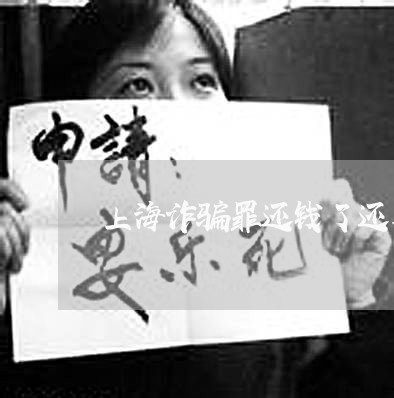 申請：
上海诈骗罪还钱了还
安乐死